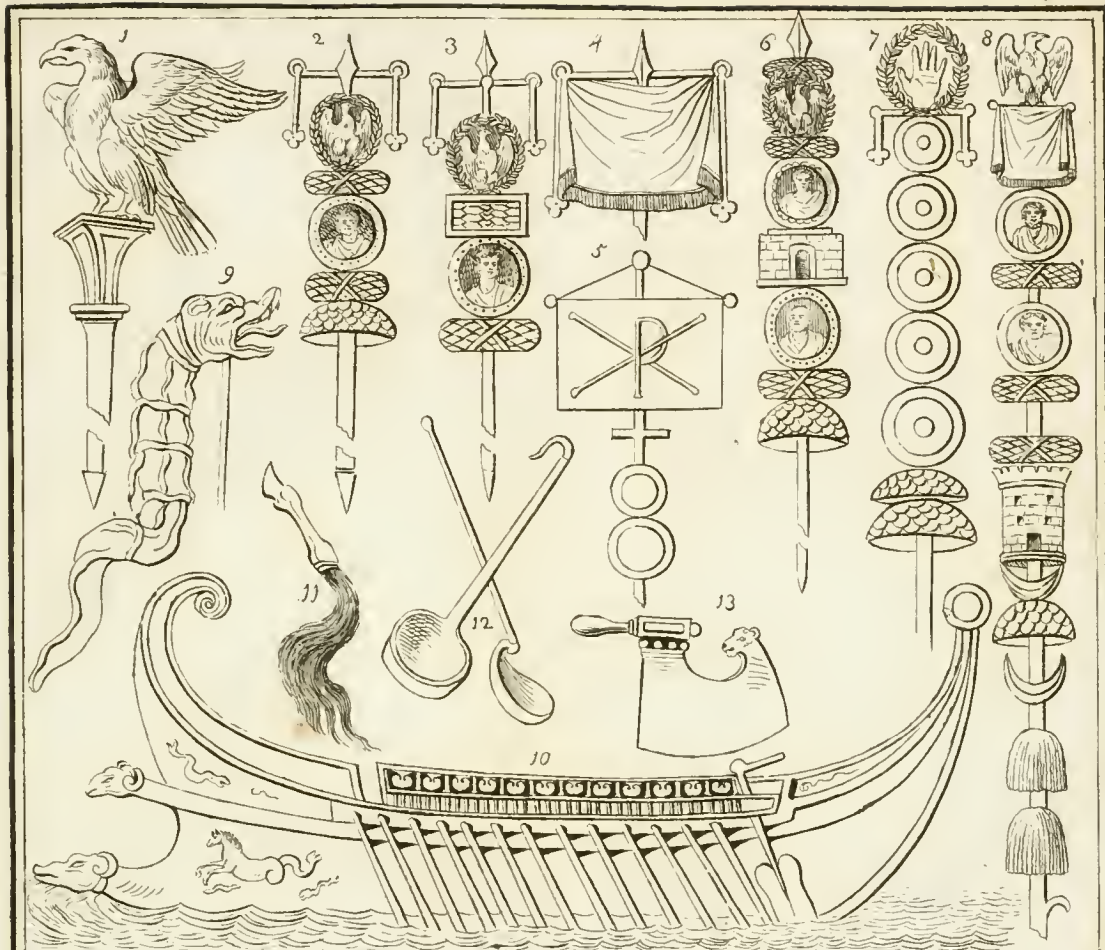 1 2 3 4 6 7 8
5
9
11 12 13
10